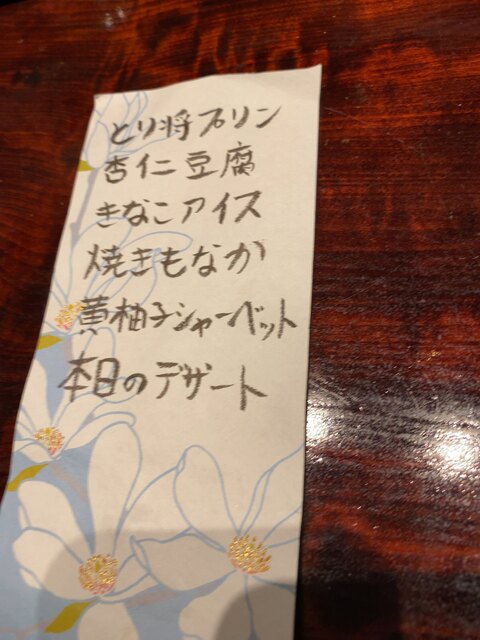 とり将プリン
杏仁豆腐
きなこアイス
焼きもなか
黄柚子シャーベット
本日のデザート